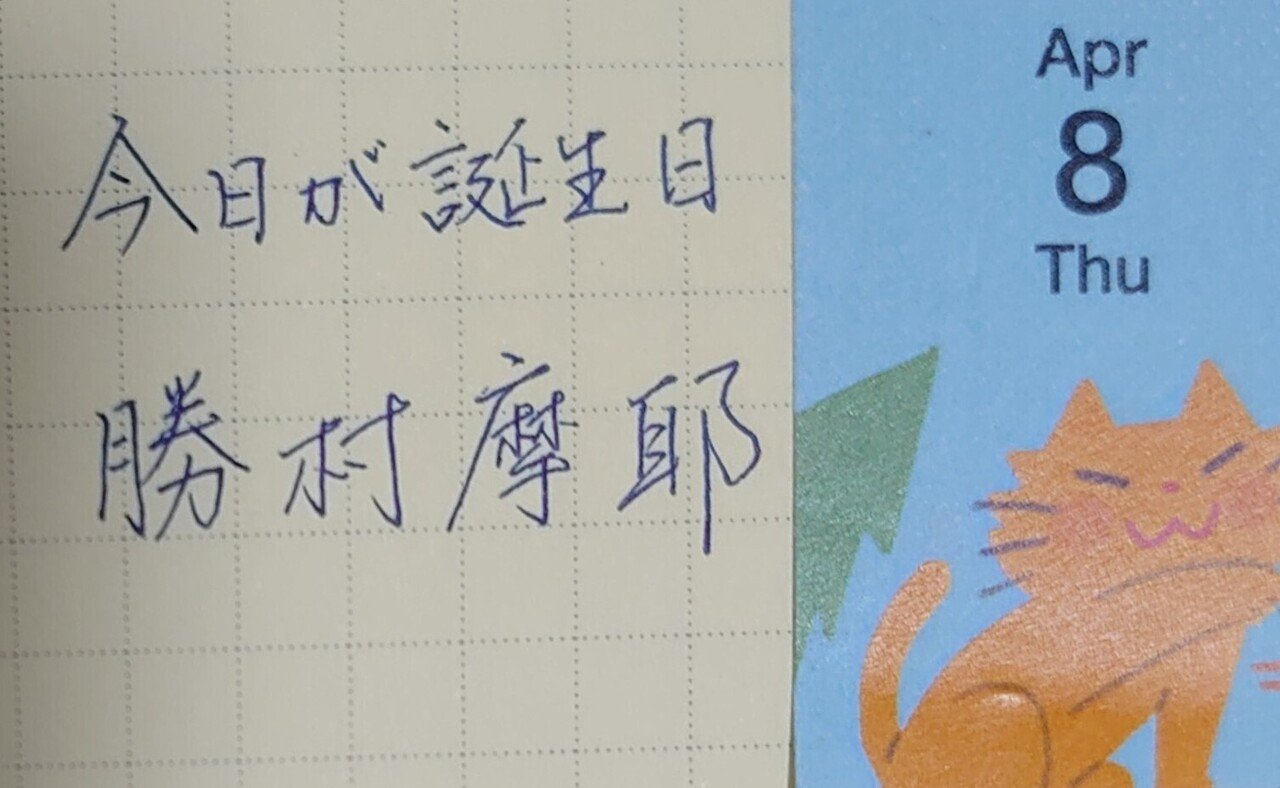 今日が誕生日
勝村摩耶
Apr
8
Thu